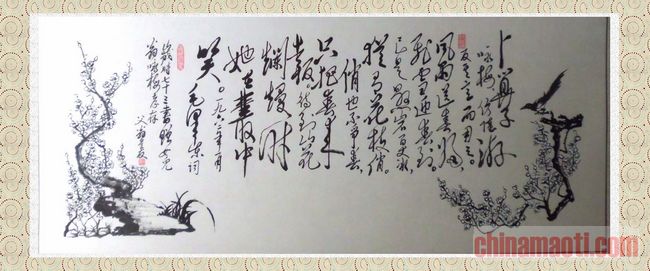 卜算子
咏梅
反其意而用之
风雨送春归
飞雪迎春到。
已是悬崖百丈冰,
犹有花枝俏。
俏也不争春,
只把春来
报。待到山花
烂熳时
她在丛中
笑。毛泽东词
chinamaoti.com